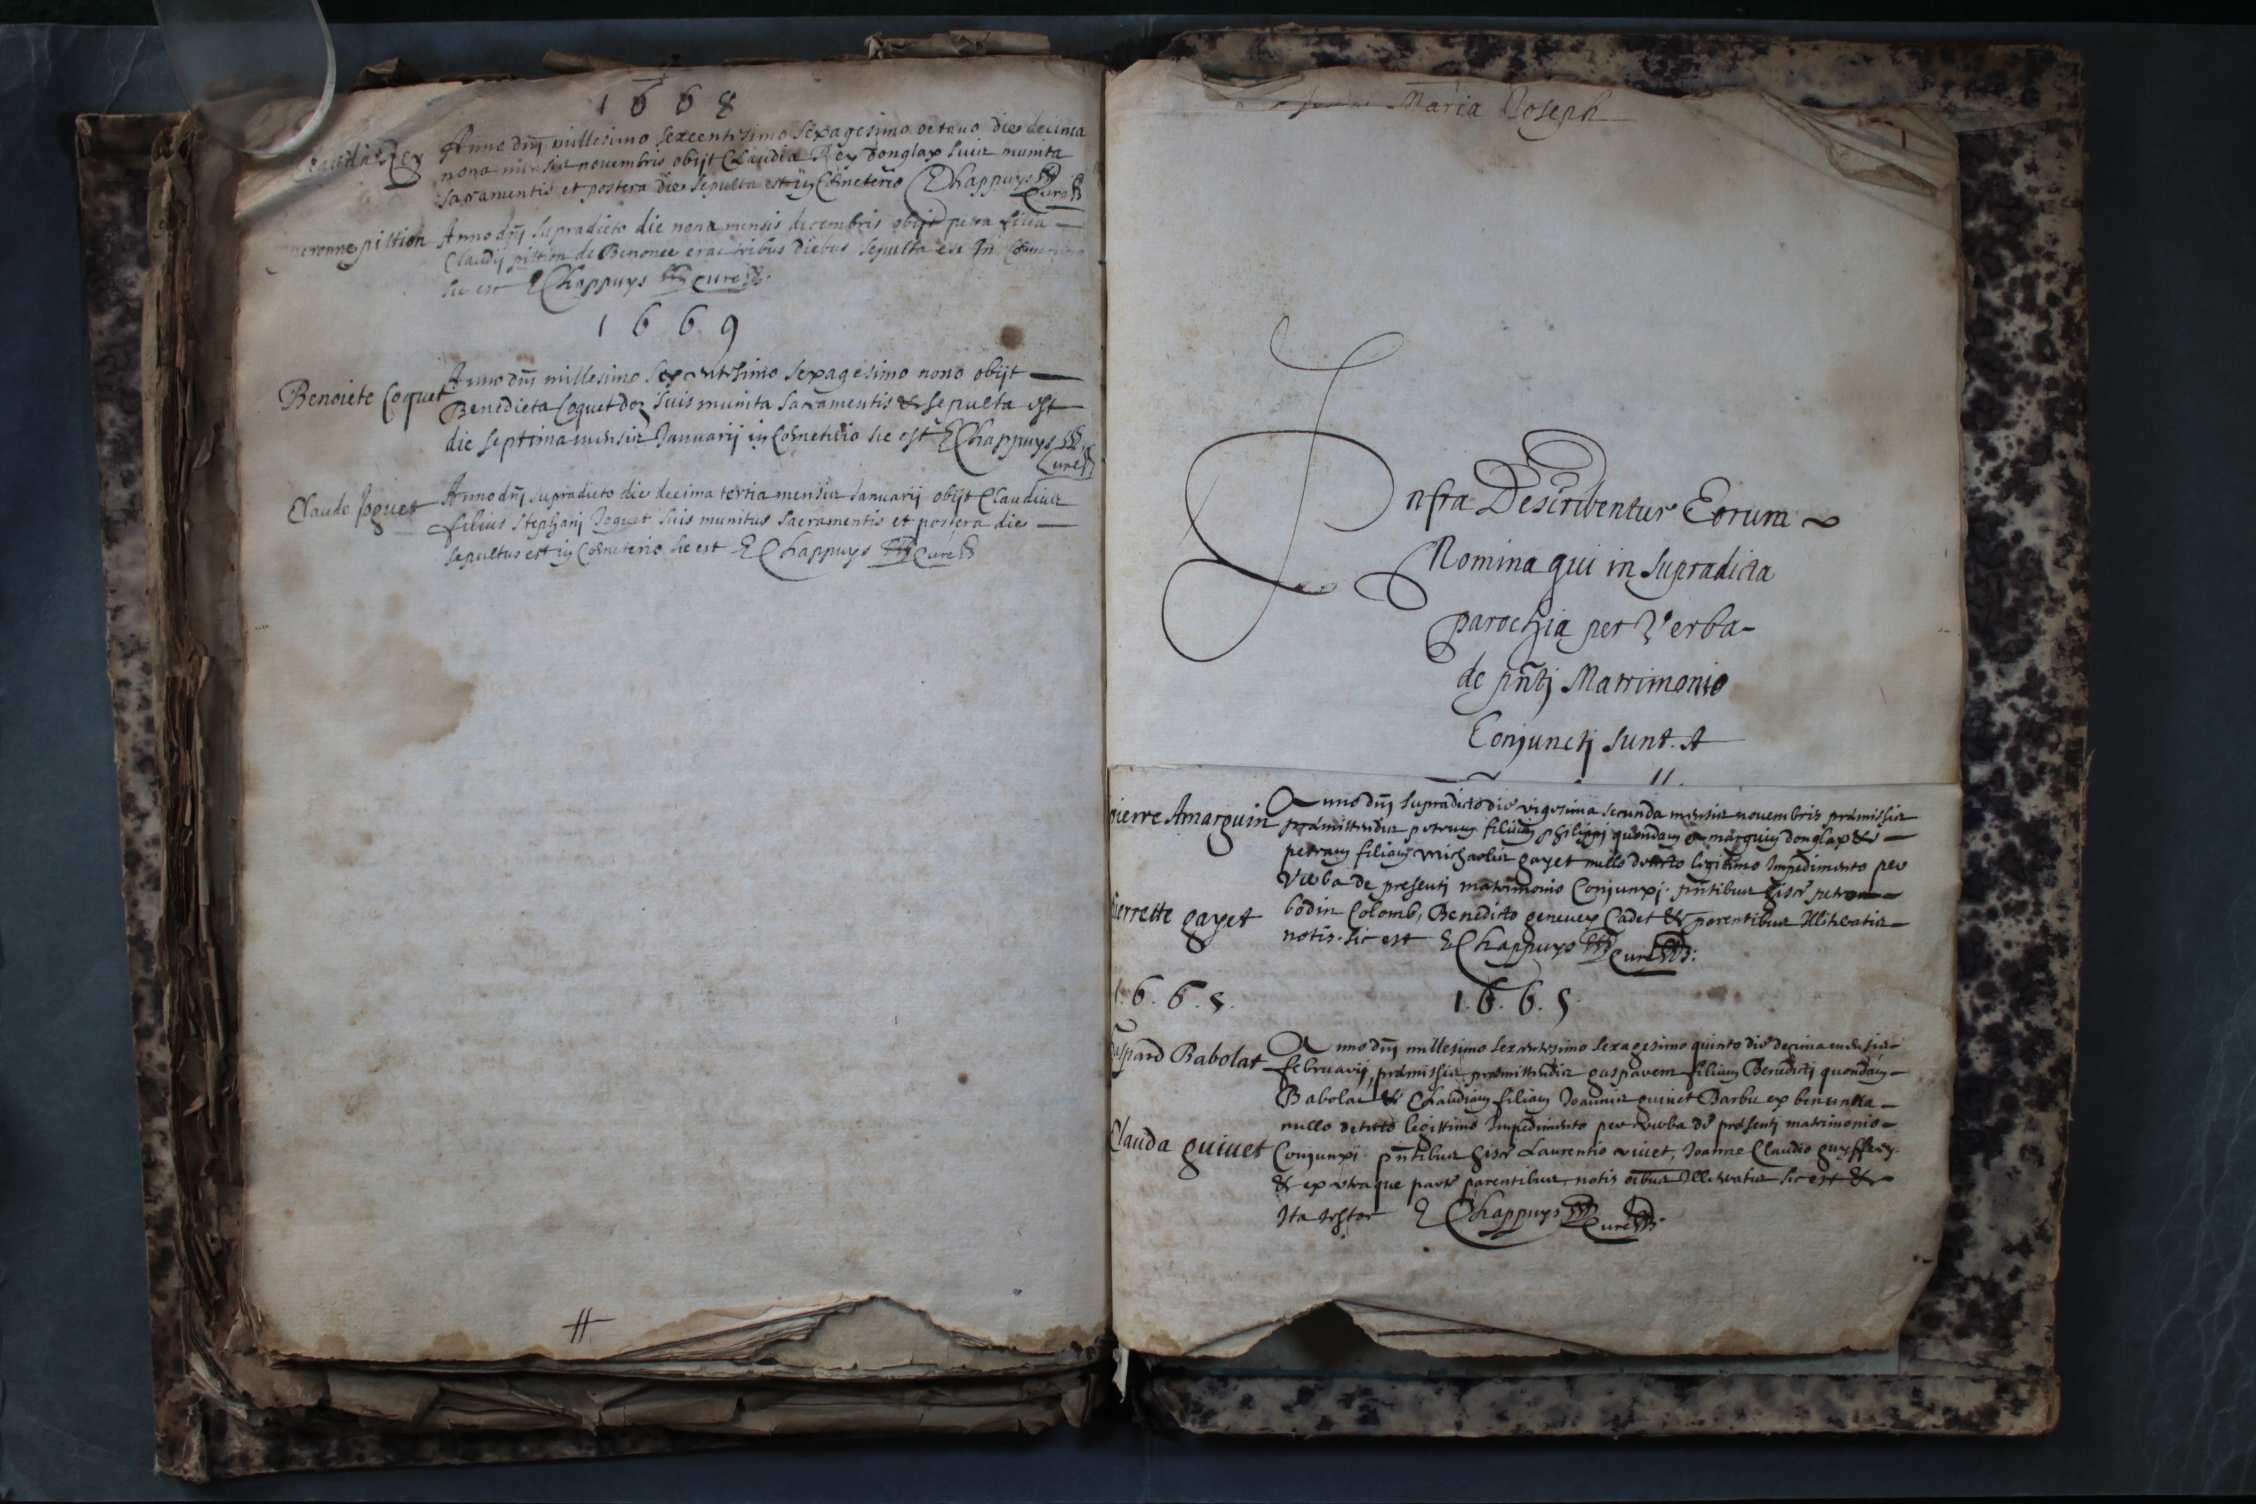 1668
Claudia Rey
Anno dñj millesimo sexcentesimo sexagesimo octauo die decima
nona mensis nouembris obijt Claudia Rey donglax suis munita
sacramentis et postera die sepulta est iŋ Cœmeterio E Chappuys
Curé
pistion
Anno dñj supradicto die nona mensis decembris obijt petra filia
Claudij pistion de Benonce tribus diebus sepulta est In
sic est E Chappuys curé
1669
Benoiete Coquet
Anno dñj millesimo sexcentesimo sexagesimo nono obijt
Benedicta Coquet suis munita sacramentis & sepulta est
die septima mensis Januarij iŋ Cœmeterio sic est E Chappuys
Curé
Claude Joguet
Anno dñj supradicto die decima tertia mensis Januarij obijt Claudius
filius stephanj Joguet suis munitus sacramentis et postera die
sepultus est iŋ Cœmeterio sic est E Chappuys Curé
Maria Joseph
1
Infra Describentur Eorum
Nomina qui in supradicta
parochia per Verba
de pñtj Matrimonio
Conjunctj sunt. A
11.
pierre Amarguin
Anno dñj supradicto die vigesima secunda mensis nouembris præmissis
præmittendis petrum filium philippj quondam amarguiŋ donglax &
petram filiam michaelis gayet nullo detecto legitimo Impedimento per
Verba de presentj matrimonio Conjunxj. pñtibus hisce petro
pierrette gayet
bodin Colomb, Benedicto geneuex Cadet & parentibus Illiteratis
notis. sic est E Chappuys Curé
1.6.6.5.
1.6.6.5
Gaspard Babolat
Anno dñj millesimo sexcentesimo sexagesimo quinto die decima mensis
februarij, præmissis præmittendis gasparem filium Benedictj quondam
Babolat & Claudiam filiam Joannis guinet Barbu ex
nullo detecto legittimo Impedimento per verba de præsentj matrimonio
Clauda guinet
Conjunxi. pñtibus hisce Laurentio viuet, Joanne Claudio guyffrey.
& ex vtraque parte parentibus notis oĩbus Illiteratis sic est &
Ita testor E Chappuys Curé